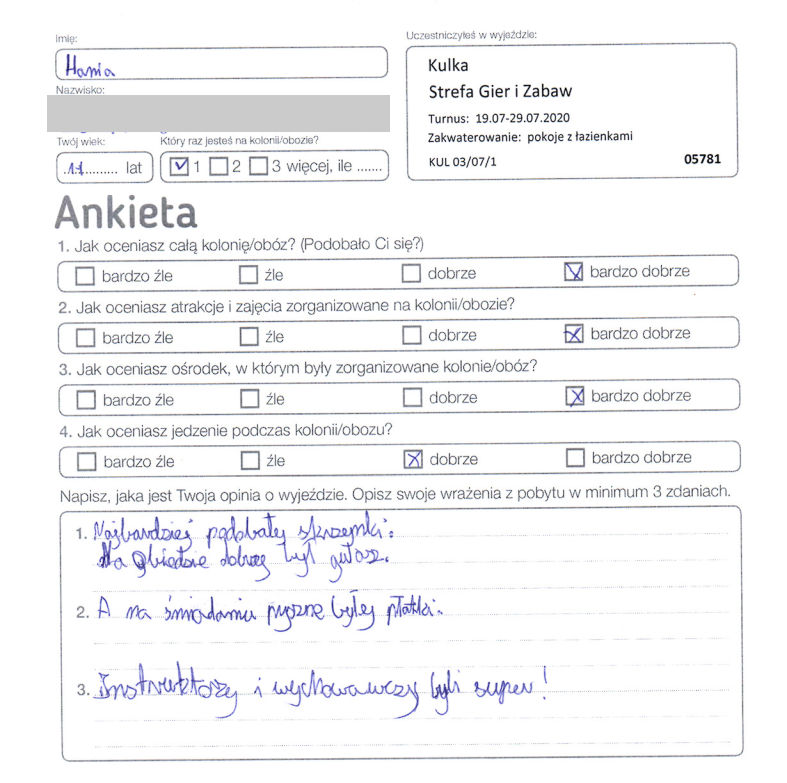 Imię:
Hania
Nazwisko:
Twój wiek:
11 lat
Który raz jesteś na kolonii/obozie?
1 2 3 więcej, ile .......
Uczestniczyłeś w wyjeździe:
Kulka
Strefa Gier i Zabaw
Turnus: 19.07-29.07.2020
Zakwaterowanie: pokoje z łazienkami
KUL 03/07/1 05781
Ankieta
1. Jak oceniasz całą kolonię/obóz? (Podobało Ci się?)
bardzo źle źle dobrze bardzo dobrze
2. Jak oceniasz atrakcje i zajęcia zorganizowane na kolonii/obozie?
bardzo źle źle dobrze bardzo dobrze
3. Jak oceniasz ośrodek, w którym były zorganizowane kolonie/obóz?
bardzo źle źle dobrze bardzo dobrze
4. Jak oceniasz jedzenie podczas kolonii/obozu?
bardzo źle źle dobrze bardzo dobrze
Napisz, jaka jest Twoja opinia o wyjeździe. Opisz swoje wrażenia z pobytu w minimum 3 zdaniach.
1. Najbardziej podobały skrzynki.
Na obiedzie dobry był gulasz.
2. A na śniadaniu pyszne były płatki.
3. Instruktorzy i wychowawczy byli super!